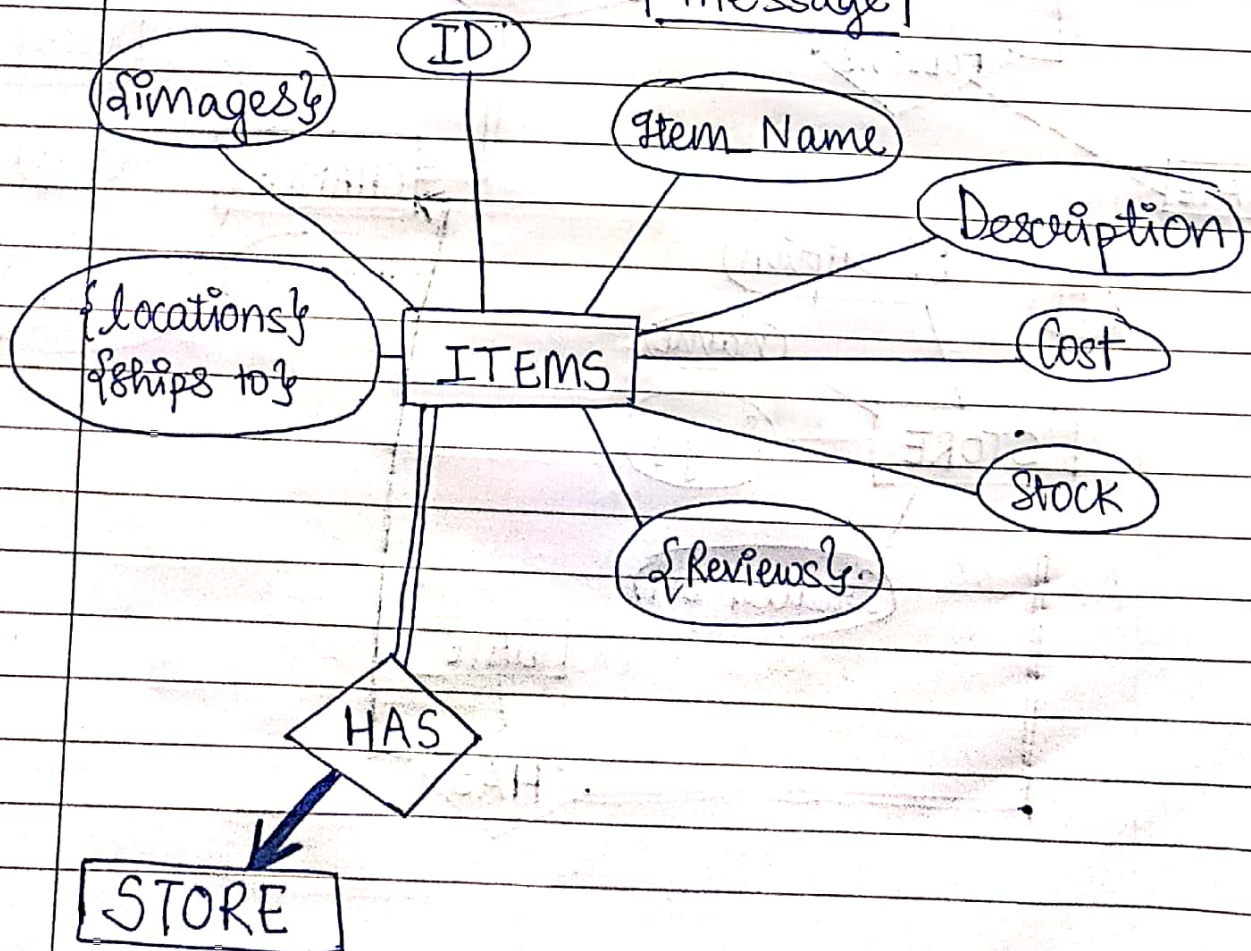 message
ID
{images}
Item_Name
Description
{locations}
{ships to}
ITEMS
Cost
Stock
{Reviews}.
HAS
STORE